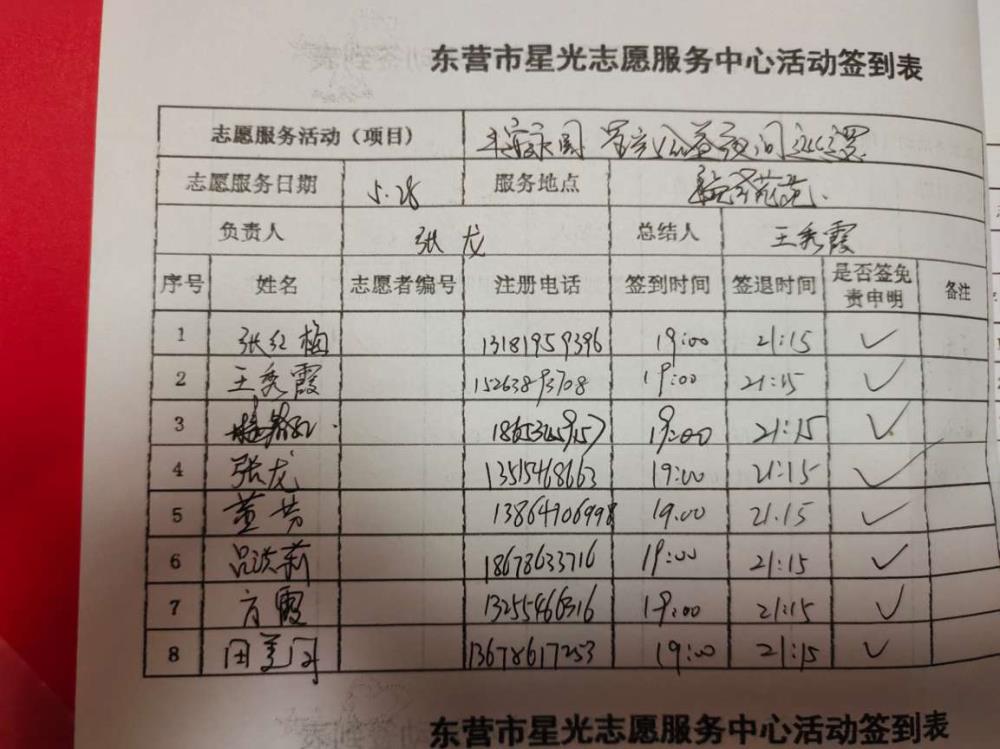 东营市星光志愿服务中心活动签到表
志愿服务活动（项目）
志愿服务日期 5.28 服务地点
负责人 张龙 总结人 王秀霞
序号 姓名 志愿者编号 注册电话 签到时间 签退时间 是否签免责申明 备注
1 张红梅 13181959396 19:00 21:15 ✓
2 王秀霞 15263893708 19:00 21:15 ✓
3 19:00 21:15 ✓
4 张龙 13515468663 19:00 21:15 ✓
5 董芳 13864706998 19:00 21:15 ✓
6 吕洪莉 18678633716 19:00 21:15 ✓
7 方霞 13255466316 19:00 21:15 ✓
8 13678617253 19:00 21:15 ✓
东营市星光志愿服务中心活动签到表